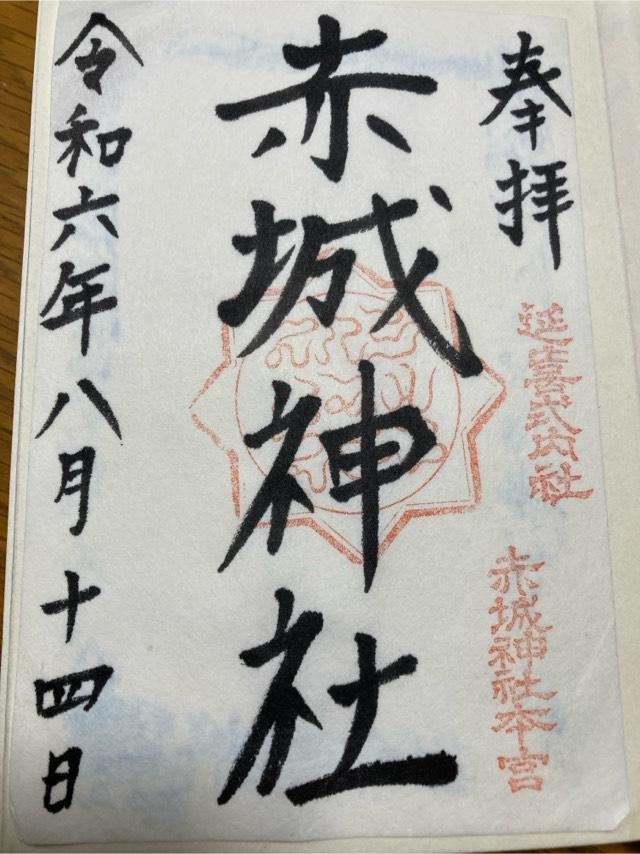 奉拝
延喜式内社
赤城神社本宮
赤城神社
令和六年八月十四日